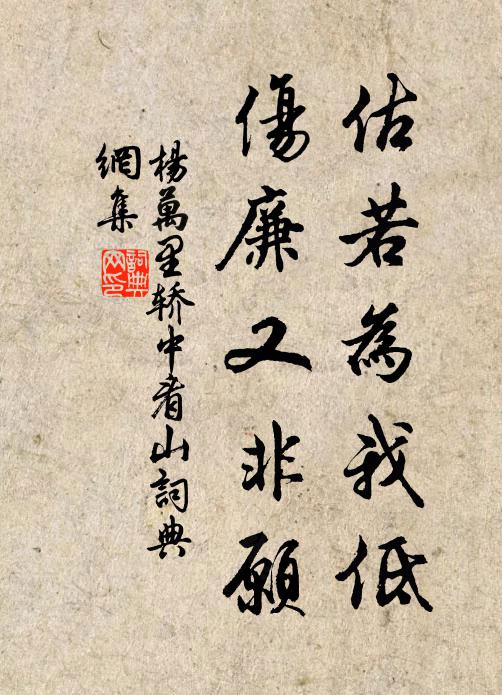 估若為我低
傷廉又非願
楊萬里轿中看山詞典
網集
詞典
网印